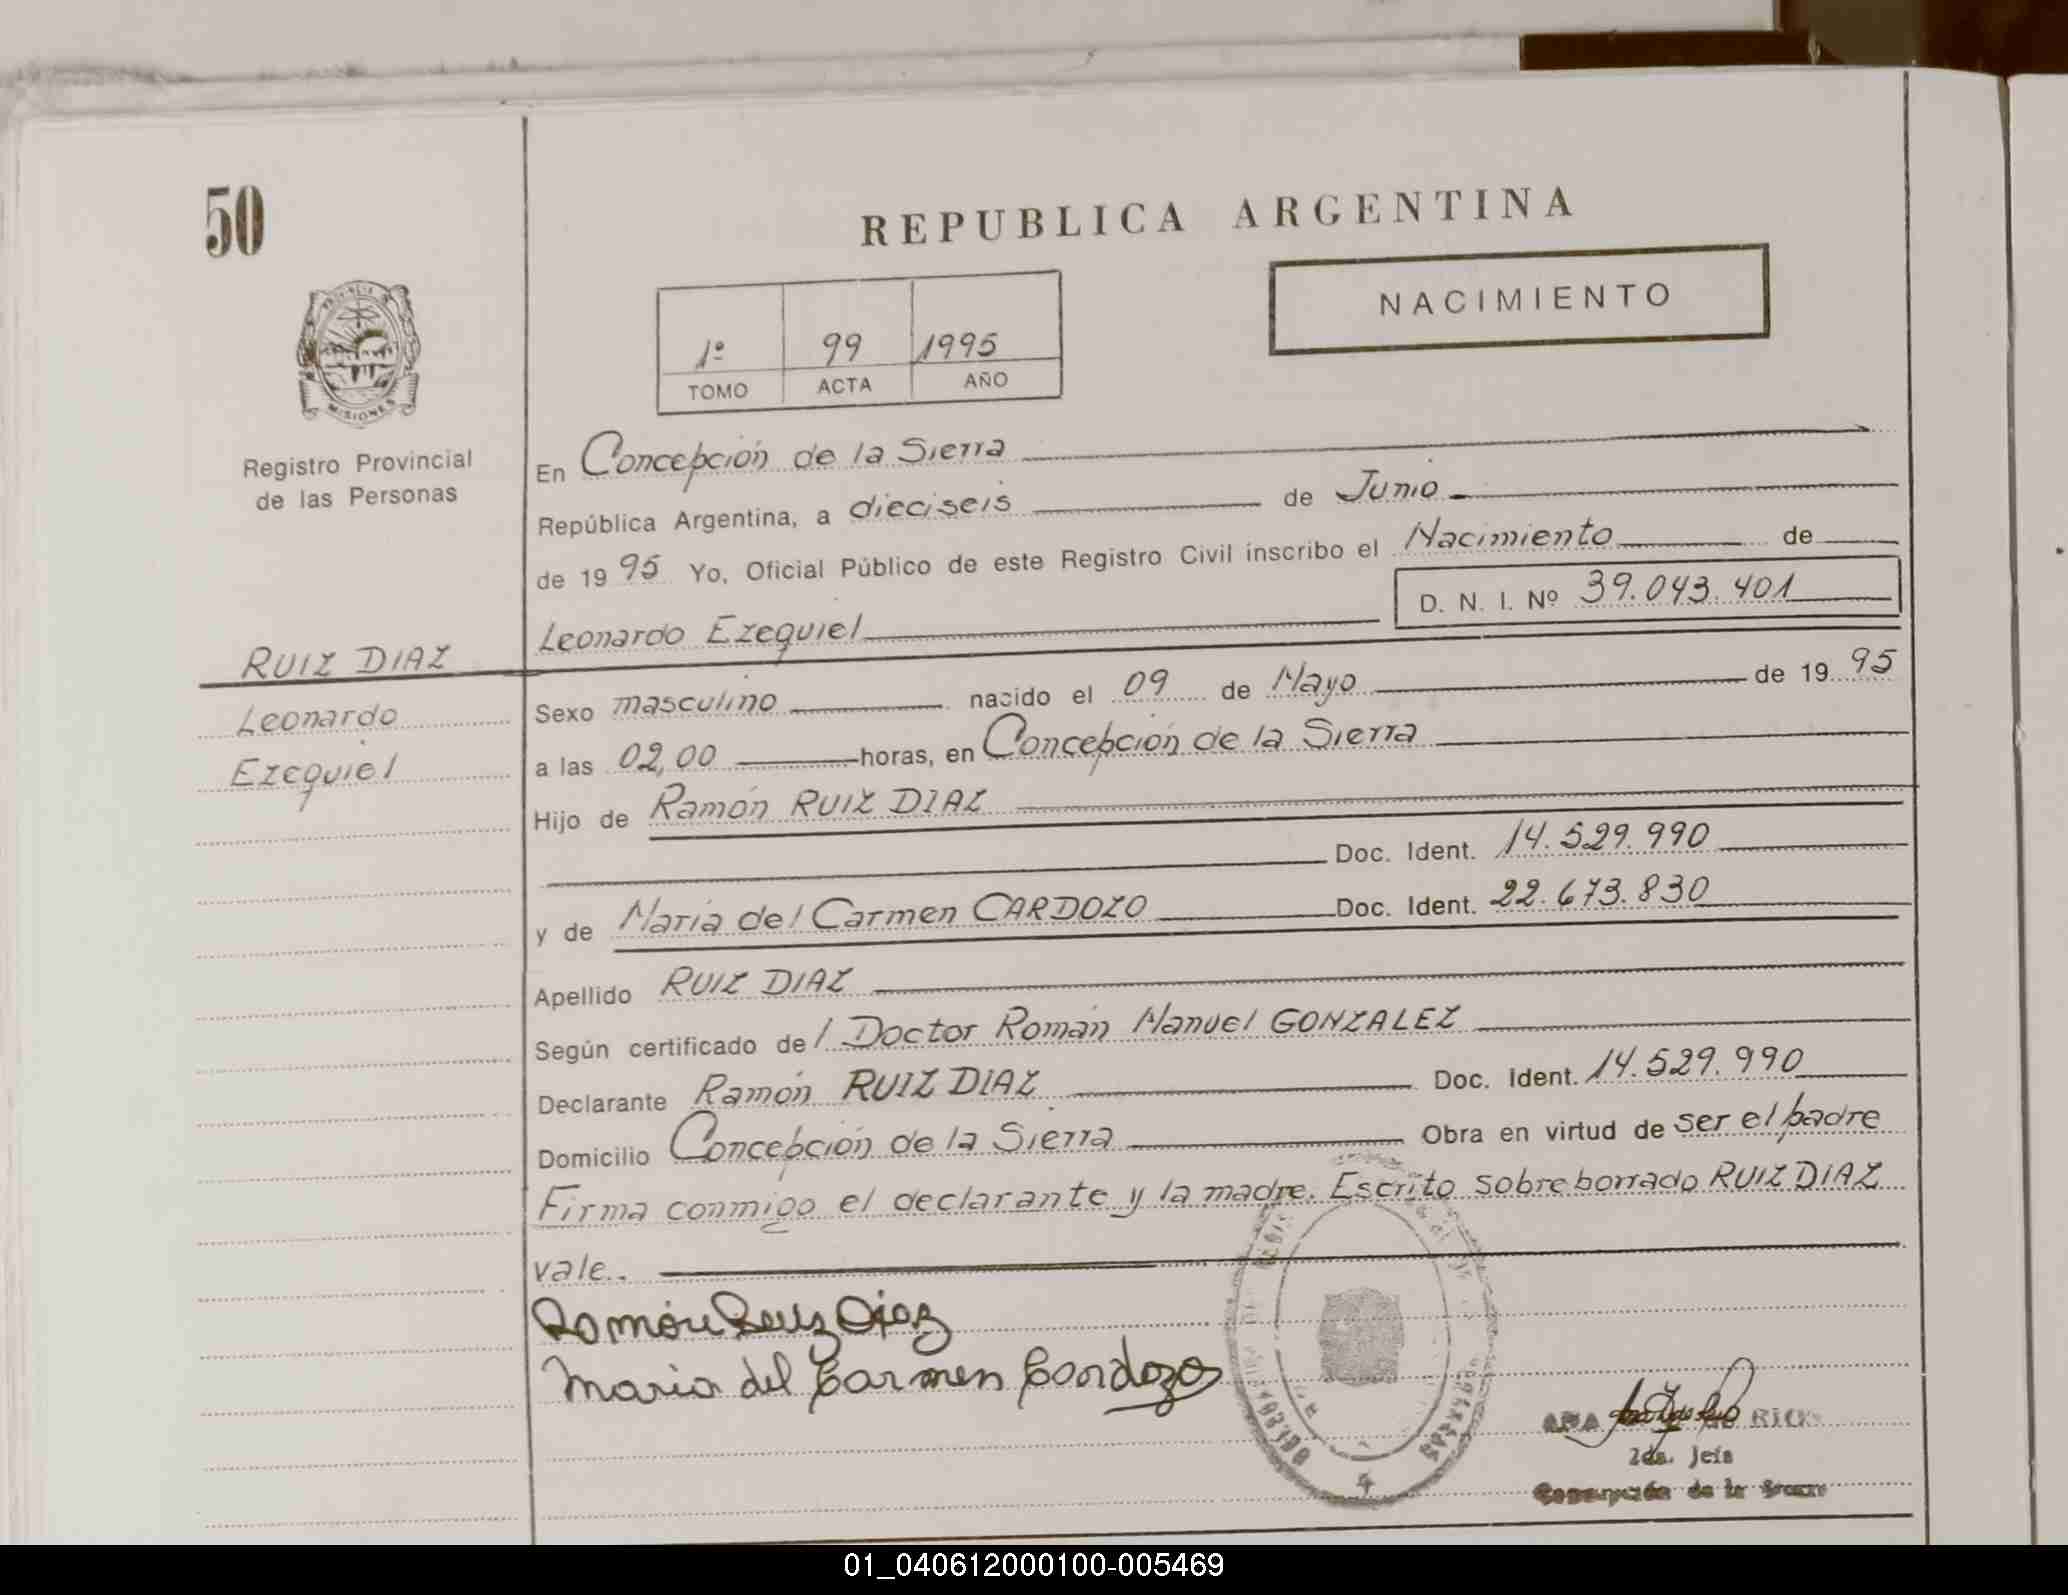 50
REPUBLICA ARGENTINA
NACIMIENTO
1º 99 1995
TOMO ACTA AÑO
MISIONES
Registro Provincial
de las Personas
RUIZ DIAZ
Leonardo
Ezequiel
En Concepción de la Sierra
República Argentina, a dieciseis de Junio
de 1995 Yo, Oficial Público de este Registro Civil inscribo el Nacimiento de
Leonardo Ezequiel D. N. I. Nº 39.043.401
Sexo masculino nacido el 09 de Mayo de 1995
a las 02,00 horas, en Concepción de la Sierra
Hijo de Ramón RUIZ DIAZ
Doc. Ident. 14.529.990
y de María del Carmen CARDOZO Doc. Ident. 22.673.830
Apellido RUIZ DIAZ
Según certificado del Doctor Román Manuel GONZALEZ
Declarante Ramón RUIZ DIAZ Doc. Ident. 14.529.990
Domicilio Concepción de la Sierra Obra en virtud de ser el padre
Firma conmigo el declarante y la madre. Escrito sobreborrado RUIZ DIAZ
vale.
Ramón Ruiz Diaz
Maria del Carmen Cardozo
ANA
2da. Jefa
Concepción de la Sierra
01_040612000100-005469